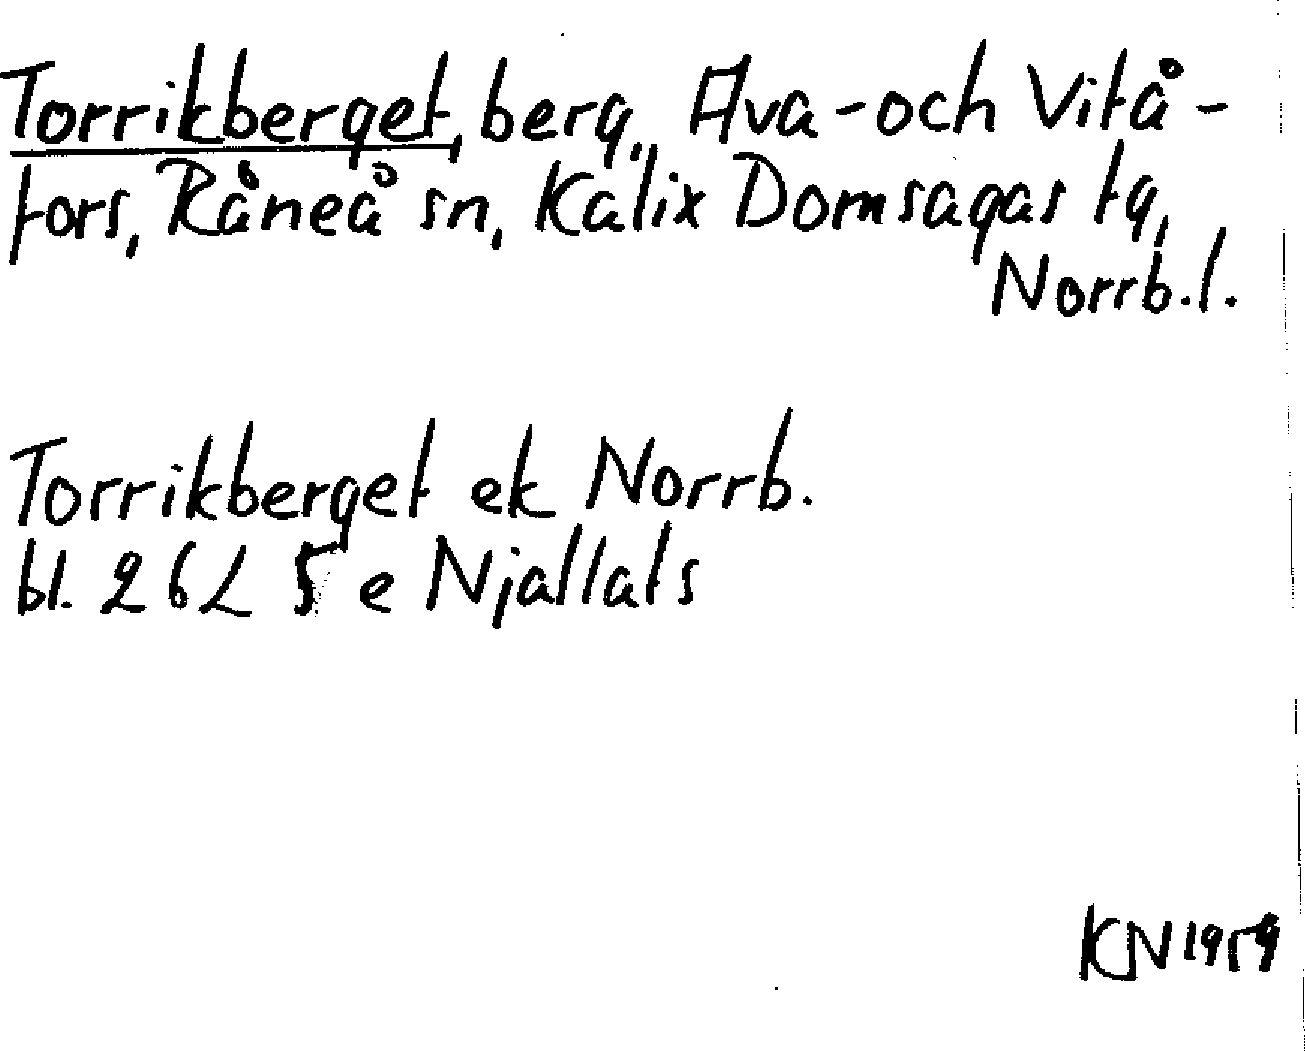 Torrikberget, berg, Ava- och Vitå-
fors, Råneå sn, Kalix Domsagas tg,
Norrb.l.
Torrikberget ek Norrb.
bl. 26L 5 e Njallats
KN 1959